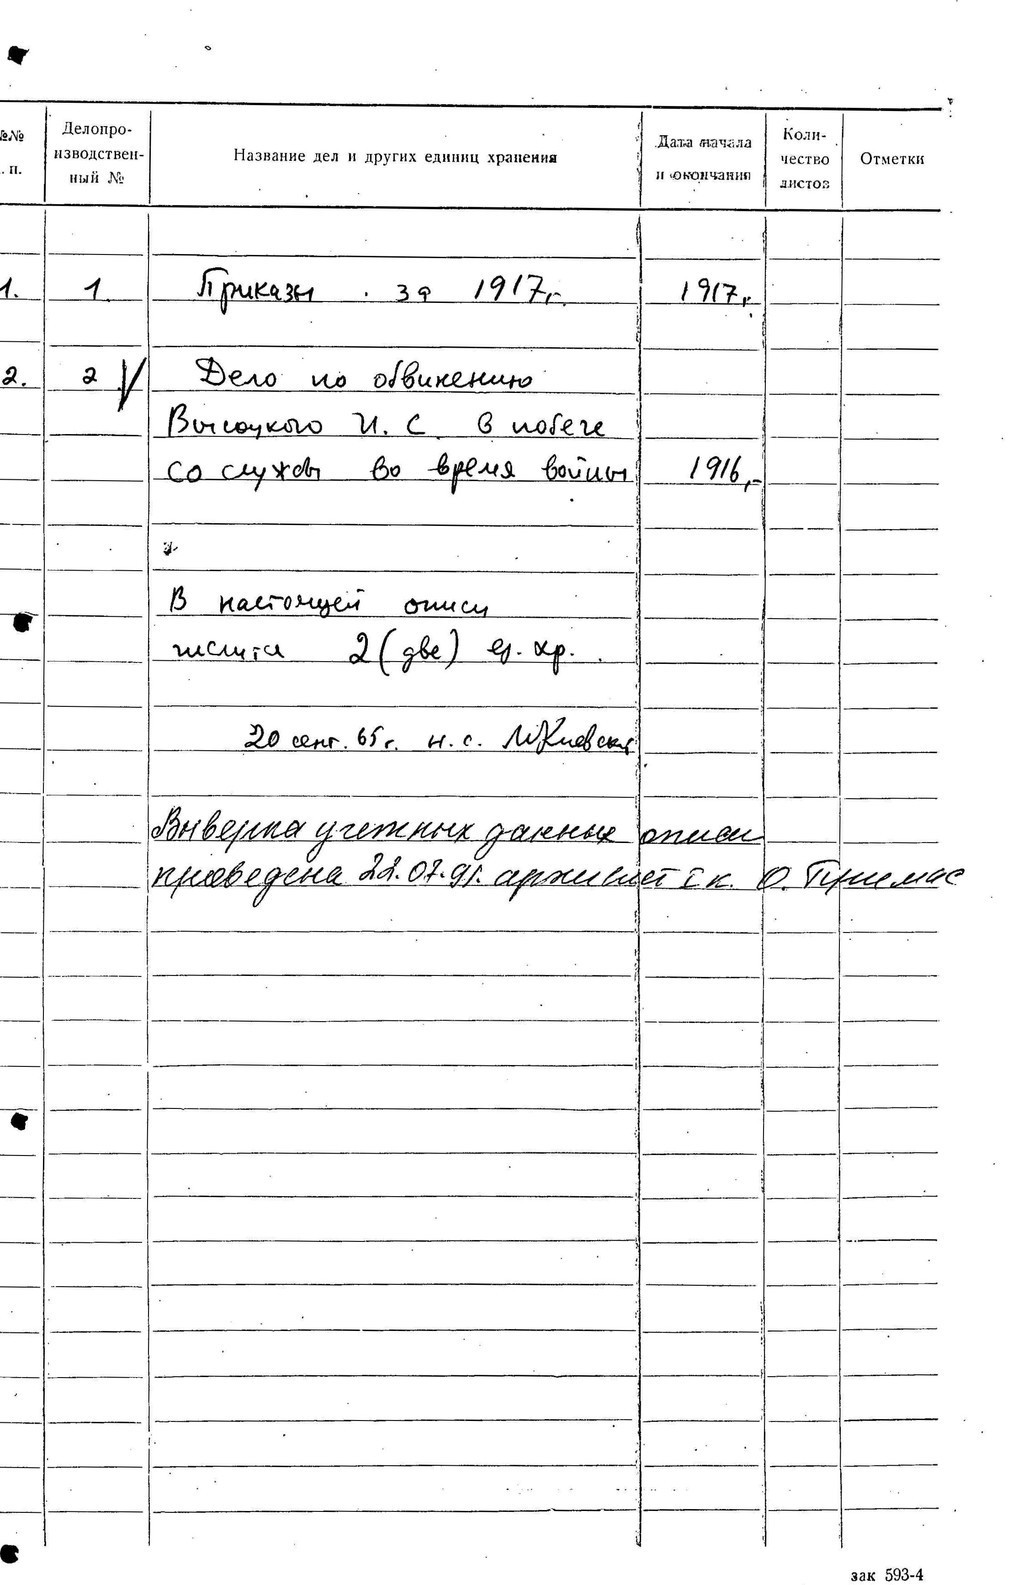 №№ п. п.
Делопро-
изводствен-
ный №
Название дел и других единиц хранения
Дата начала
и окончания
Коли-
чество
листов
Отметки
1. 1 Приказы за 1917 г. 1917 г.
2. 2 Дело по обвинению
Высоцкого И. С. в побеге
со службы во время войны 1916 г.
В настоящей описи
числится 2 (две) ед. хр.
20 сент. 65 г. н. с.
Выверка учетных данных описи
проведена 22.07.91. архивист I к. О. Примас
зак 593-4